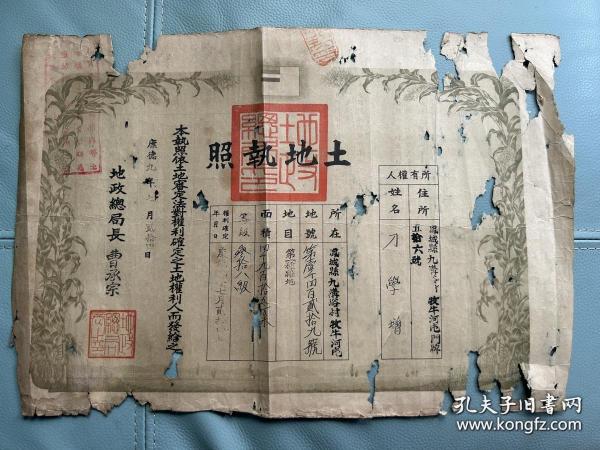 土地執照
所有權人
住所
鳳城縣九溝峪村牧牛河屯門牌
五拾六號
姓名
刁學增
所在
鳳城縣九溝峪村牧牛河屯
地號
第壹千四百貳拾九號
地目
面積
等級
參拾八級
權利確定
年月日
本執照依土地審定法對權利確定之土地權利人而發給之
康德九年七月貳拾四日
地政總局長 曹承宗
孔夫子旧书网
www.kongfz.com